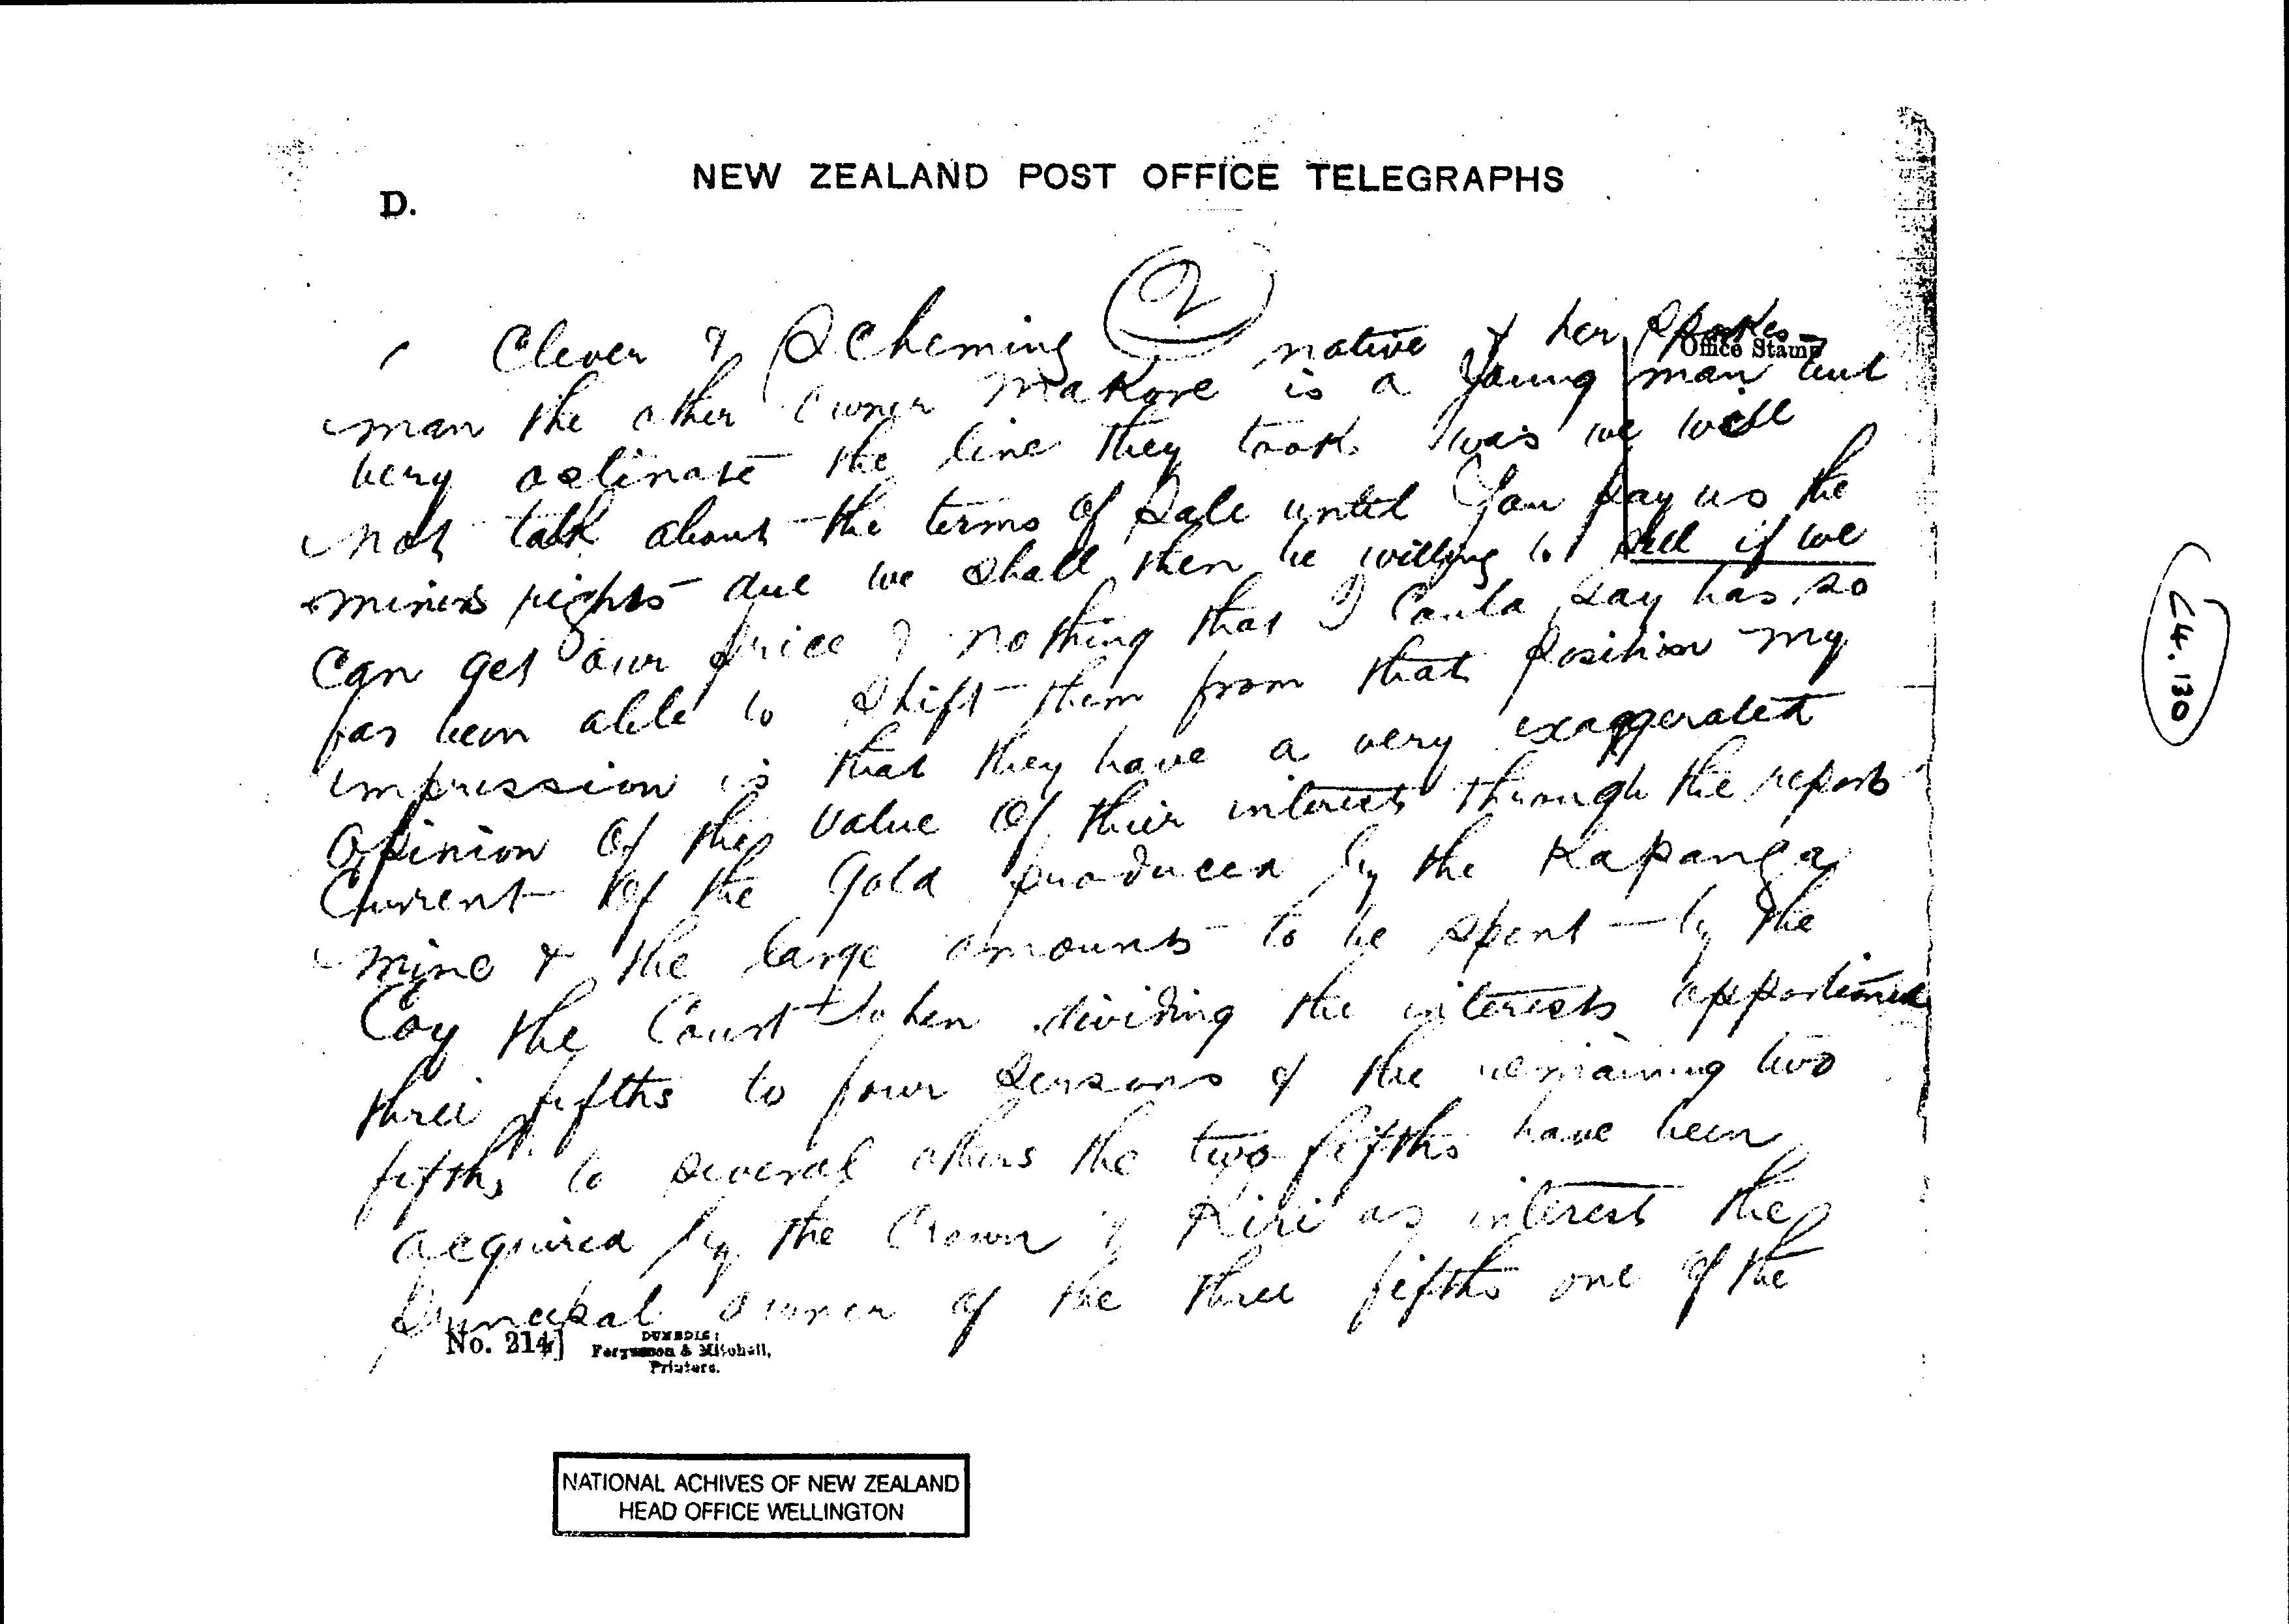 NEW ZEALAND POST OFFICE TELEGRAPHS
D.
2
Office Stamp
Clever & Scheming native & her spokes
man the other owner Makore is a young man but
very ostinate the line they took was we will
not talk about the terms of sale until you pay us the
miners rights due we shall then be willing to sell if we
can get our price & nothing that I could say has so
far been able to shift them from that position my
impression is that they have a very exaggerated
opinion of the value of their interests through the reports
current of the gold produced by the Kapanga
mine & the large amounts to be spent by the
Coy the Court when dividing the interests apportioned
three fifths to four persons & the remaining two
fifths to several others the two fifths have been
acquired by the Crown & Kiri as interest the
principal owner of the three fifths one of the
No. 214]
DUNEDIN:
Fergusson & Mitchell,
Printers.
NATIONAL ACHIVES OF NEW ZEALAND
HEAD OFFICE WELLINGTON
L4.130